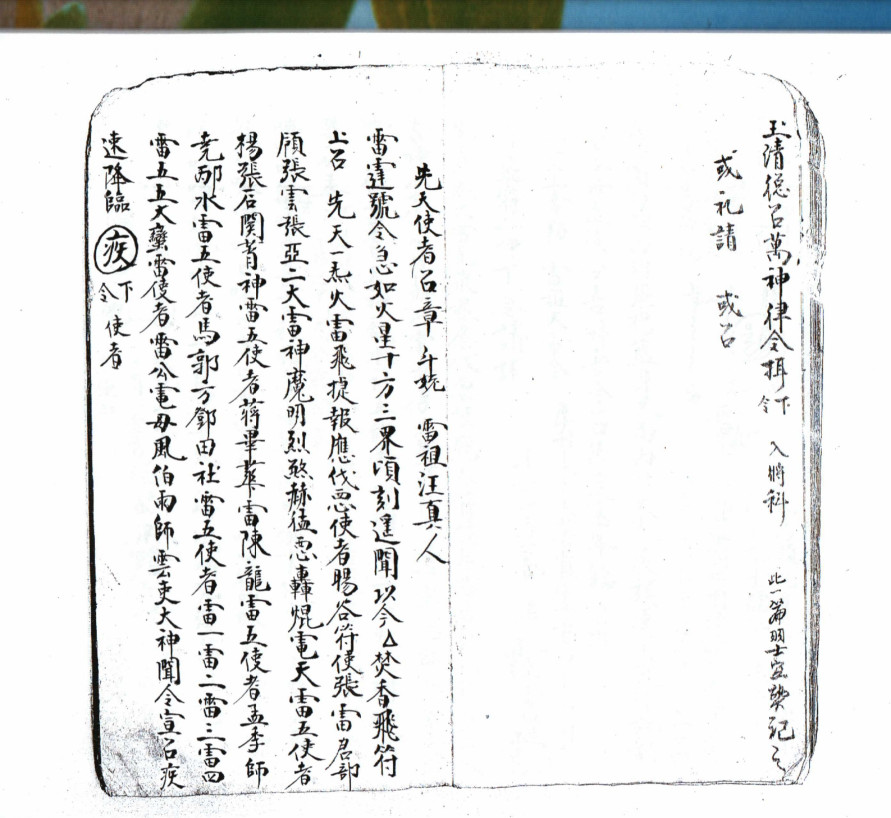 玉清總召萬神律令揖下令 入將科 此一篇羽士宜熟記之
或礼請 或召
先天使者召章 斗姥 雷祖汪真人
雷霆號令急如火星十方三界頃刻遥聞以今厶焚香飛符
上召 先天一炁火雷飛捷報應伐惡使者暘谷符使張雷君部
領張雲張亞二大雷神魔明烈煞赫猛惡轟焜電天雷五使者
楊張石関青神雷五使者蔣畢華雷陳龍雷五使者孟季師
堯邴水雷五使者馬郭方鄧田社雷五使者雷一雷二雷三雷四
雷五五大蠻雷使者雷公電母風伯雨師雲吏大神聞令宣召疾
速降臨 疾 下令 使者